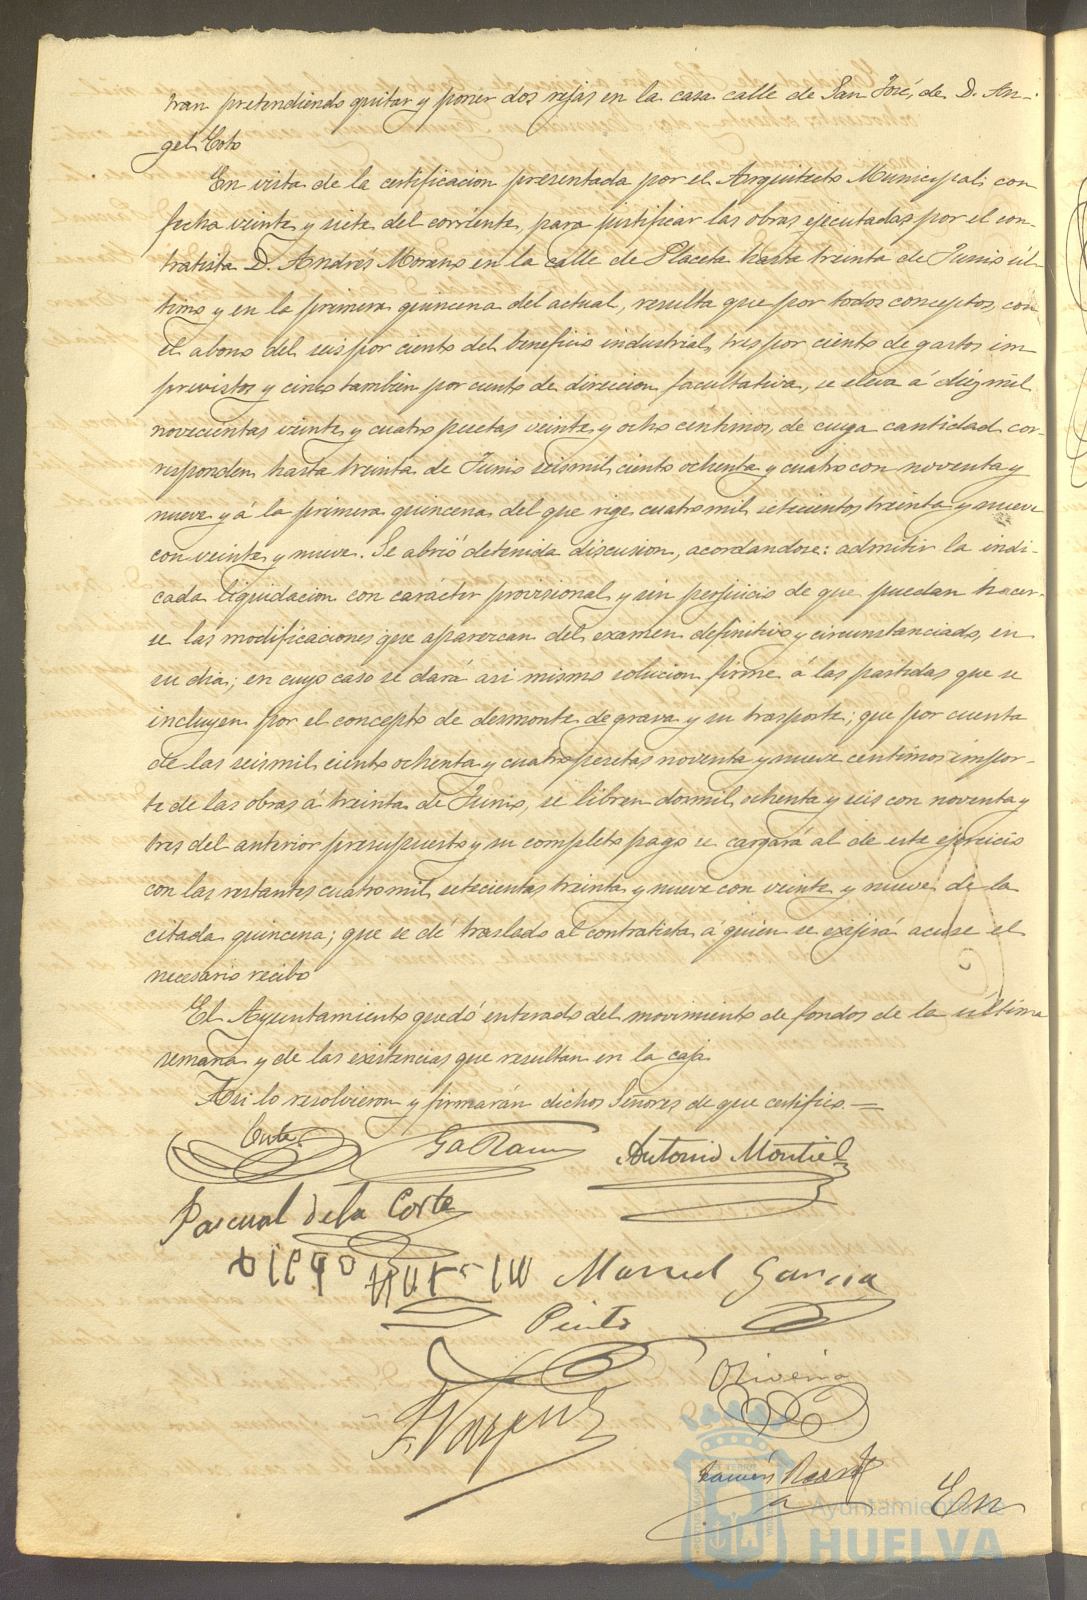 tran pretendiendo quitar y poner dos rejas en la casa calle de San José, de D. An-
gel Coto
En vista de la certificacion presentada por el Arquitecto Municipal con
fecha veinte y siete del corriente, para justificar las obras ejecutadas por el con
tratista D. Andrés Moreno en la calle de Placeta hasta treinta de Junio úl-
timo y en la primera quincena del actual, resulta que por todos conceptos, con
el abono del seis por ciento del beneficio industrial, tres por ciento de gastos im
previstos y cinco tambien por ciento de direccion facultativa, se eleva á diez mil
novecientas veinte y cuatro pesetas veinte y ocho centimos, de cuya cantidad cor-
responden hasta treinta de Junio seis mil ciento ochenta y cuatro con noventa y
nueve y á la primera quincena del que rige cuatro mil setecientos treinta y nueve
con veinte y nueve. Se abrió detenida discusion, acordandose: admitir la indi
cada liquidacion con carácter provisional y sin perjuicio de que puedan hacer-
se las modificaciones que aparezcan del examen definitivo y circunstanciado, en
su dia; en cuyo caso se dará asi mismo solucion firme á las partidas que se
incluyen por el concepto de desmonte de grava y su trasporte; que por cuenta
de las seis mil ciento ochenta y cuatro pesetas noventa y nueve centimos impor-
te de las obras á treinta de Junio, se libren dos mil ochenta y seis con noventa y
tres del anterior presupuesto y su completo pago se cargará al de este ejercicio
con las restantes cuatro mil setecientas treinta y nueve con veinte y nueve de la
citada quincena; que se dé traslado al contratista á quien se exijirá acuse el
necesario recibo
El Ayuntamiento quedó enterado del movimiento de fondos de la última
semana y de las existencias que resultan en la caja.
Asi lo resolvieron y firmarán dichos Señores de que certifico.=
Antonio Montiel
Pascual de la Corte
Diego Manuel Garcia
Pinto
Oliveira
F Vazquez
Ramón
En
Ayuntamiento de
HUELVA